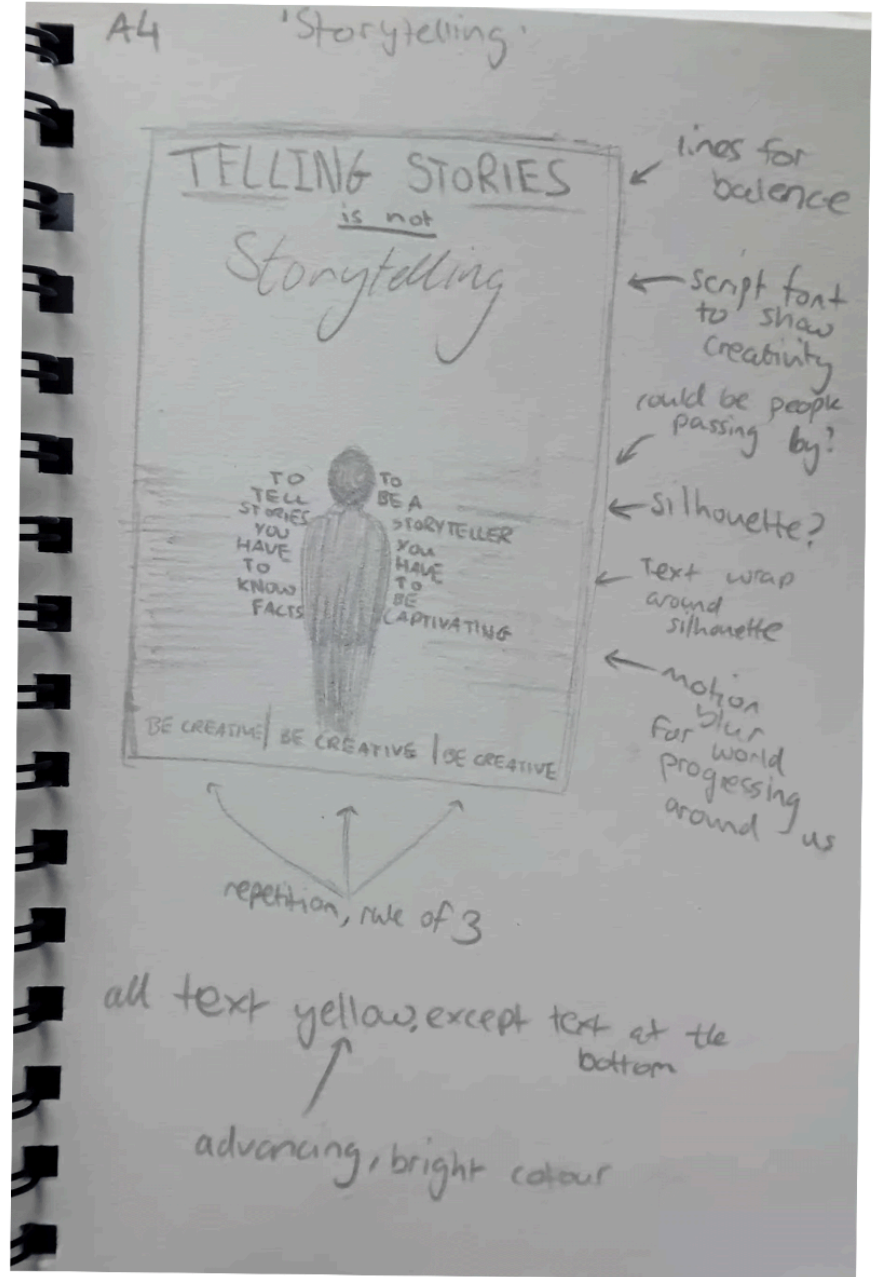 A4 'Storytelling'
TELLING STORIES
is not
Storytelling
TO
TELL
STORIES
YOU
HAVE
TO
KNOW
FACTS
TO
BE A
STORYTELLER
YOU
HAVE
TO
BE
CAPTIVATING
BE CREATIVE| BE CREATIVE |BE CREATIVE
lines for
balence
script font
to show
creativity
could be people
passing by?
Silhouette?
Text wrap
around
silhouette
Motion
blur
for world
progressing
around us
repetition, rule of 3
all text yellow, except text at the
bottom
advancing, bright colour